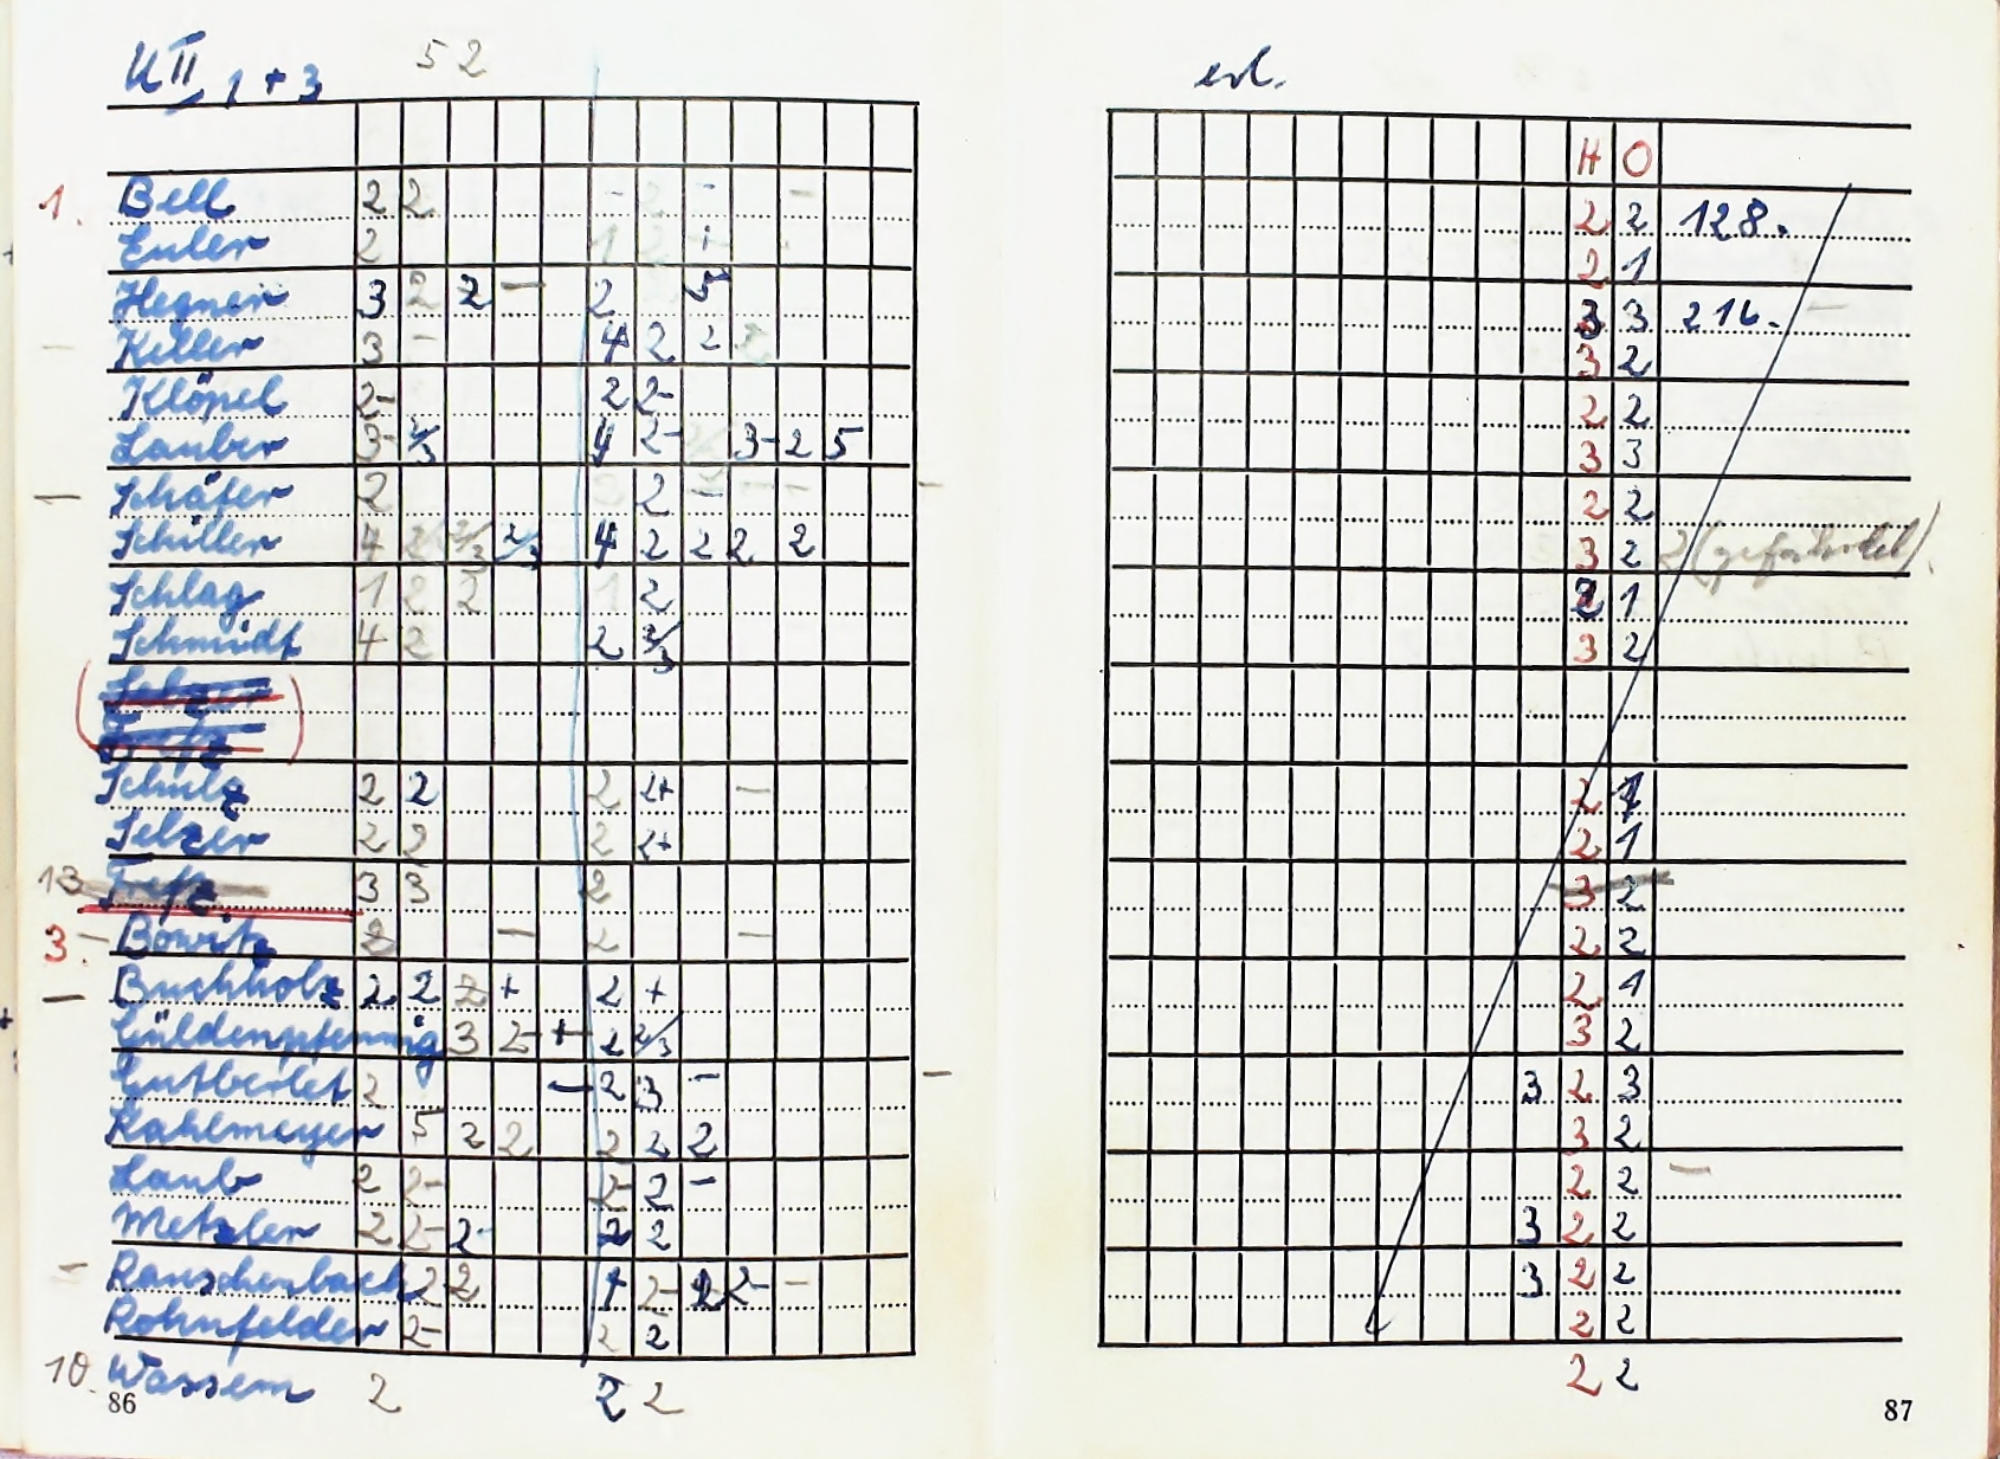 UII 1 + 3 52
1. Bell 2 2 - 2 - -
Euler 2 1 2 +
Hegner 3 2 2 - 2 5
- Keller 3 - 4 2 2 2
Klöpel 2- 2 2-
Lauber 3- 2/3 4 2- 3- 2 5
- Schäfer 2 2 - - - -
Schiller 4 2 2/3 2/3 4 2 2 2 2
Schlag 1 2 2 1 2
Schmidt 4 2 2 2/3
Schulz 2 2 2 2+ -
Selzer 2 2 2 2+
13 Trefz 3 3 2
3. - Bowitz 2 - 2 -
- Buchholz 2 2 2 + 2 +
Güldenpfennig 3 2- + 2 2/3
Gutberlet 2 - 2 3 - -
Kahlmeyer 5 2 2 2 2 2
Laub 2 2- 2- 2 -
Metzler 2 2- 2- 2 2
- Rauschenbach 2 2 + 2- 2 2- -
Rohnfelder 2- 2 2
10. Wassem 2 2 2
86
erl.
H O
2 2 128.
2 1
3 3 216. -
3 2
2 2
3 3
2 2
3 2 2 (gefährdet)
2 1
3 2
2 1
2 1
3 2
2 2
2 1
3 2
3 2 3
3 2
2 2 -
3 2 2
3 2 2
2 2
2 2
87